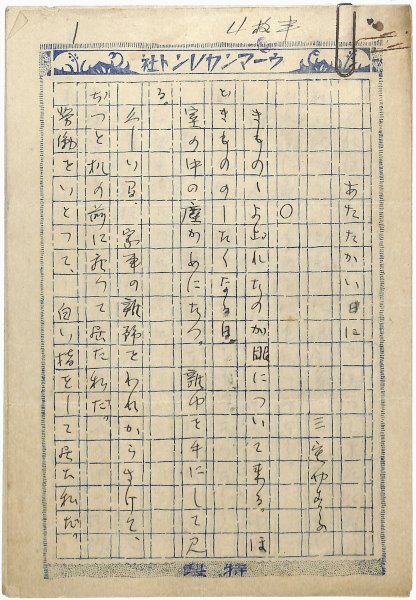 1
4枚半
ウーマンカレント社
あたたかい日に
三宅やす子
○
きものゝよごれたのが眼について来る。ほ
どきものゝしたくなる日。
室の中の塵がめにたつ。雑巾を手にして見
る。
家事の雑務をわれからさけて、
ぢつと机の前に座つて居た私だ。
労働をいとつて、白い指をして居た私だ。
特製